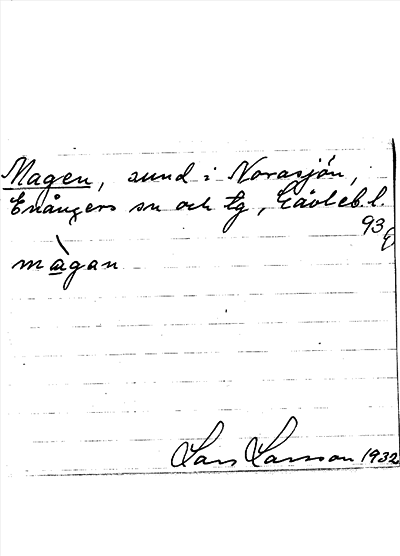 Magen, sund i Norasjön,
Enångers sn och tg, Gävleb l.
93
màgan
Lars Larsson 1932